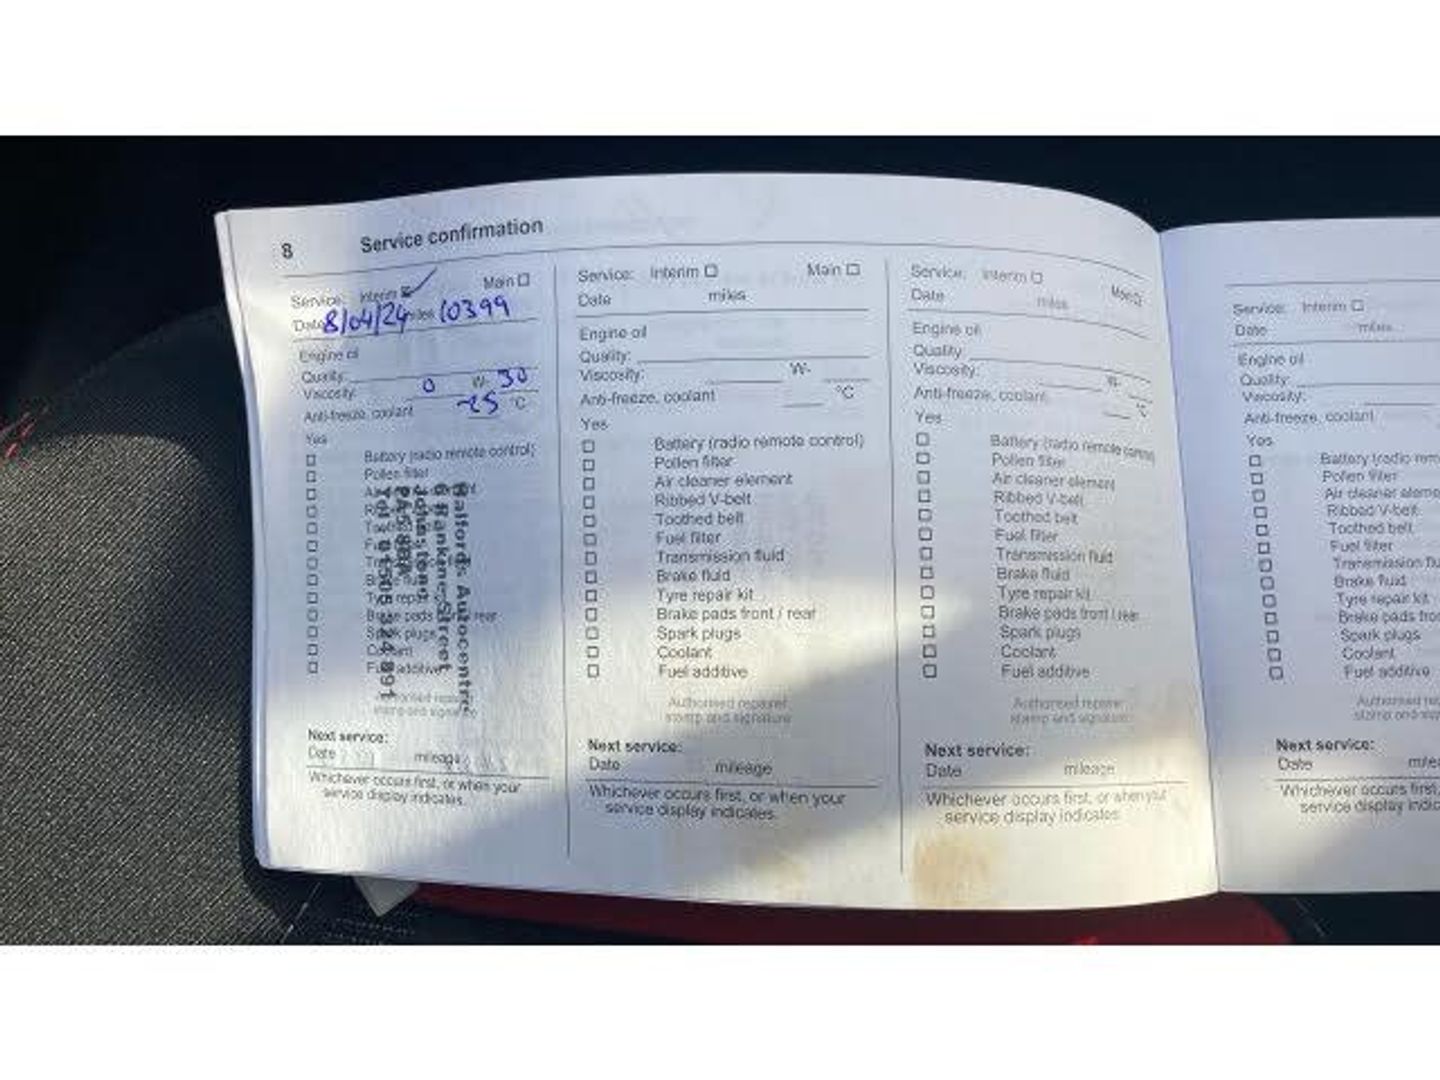 8 Service confirmation
Service: Interim Main
Date 8/04/24 miles 10399
Engine oil
Quality:
Viscosity: 0 W- 30
Anti-freeze, coolant -25 °C
Yes
Battery (radio remote control)
Pollen filter
Halfords Autocentre
6 Rankine Street
Johnstone
PA5 8BA
Tel 01505 324 891
Spark plugs
Coolant
Fuel additive
Authorised repairer
stamp and signature
Next service:
Date mileage
Whichever occurs first, or when your
service display indicates.
Service: Interim Main
Date miles
Engine oil
Quality:
Viscosity: W-
Anti-freeze, coolant °C
Yes
Battery (radio remote control)
Pollen filter
Air cleaner element
Ribbed V-belt
Toothed belt
Fuel filter
Transmission fluid
Brake fluid
Tyre repair kit
Brake pads front / rear
Spark plugs
Coolant
Fuel additive
Authorised repairer
stamp and signature
Next service:
Date mileage
Whichever occurs first, or when your
service display indicates.
Service: Interim Main
Date miles
Engine oil
Quality:
Viscosity: W-
Anti-freeze, coolant °C
Yes
Battery (radio remote control)
Pollen filter
Air cleaner element
Ribbed V-belt
Toothed belt
Fuel filter
Transmission fluid
Brake fluid
Tyre repair kit
Brake pads front / rear
Spark plugs
Coolant
Fuel additive
Authorised repairer
stamp and signature
Next service:
Date mileage
Whichever occurs first, or when your
service display indicates.
Service: Interim
Date miles
Engine oil
Quality:
Viscosity:
Anti-freeze, coolant
Yes
Battery (radio rem
Pollen filter
Air cleaner eleme
Ribbed V-belt
Toothed belt
Fuel filter
Transmission flu
Brake fluid
Tyre repair kit
Brake pads fro
Spark plugs
Coolant
Fuel additive
Authorised rep
stamp and sig
Next service:
Date mile
Whichever occurs first,
service display indic